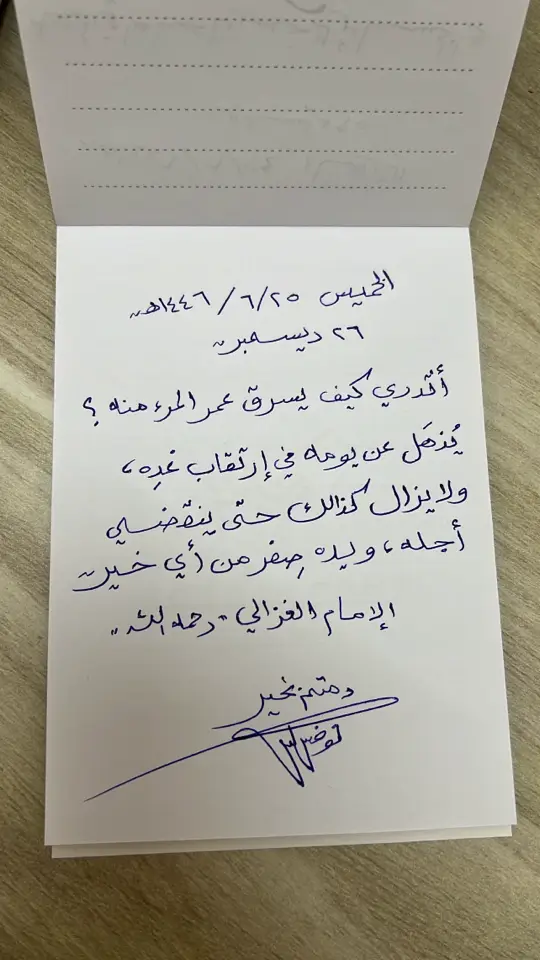 الخميس ٢٥/٦/١٤٤٦هـ
٢٦ ديسمبر
أتدري كيف يسرق عمر المرء منه ؟
يُذهَل عن يومه في إرتقاب غدِه،
ولا يزال كذالك حتّى ينقضي
أجله، ويده صِفر من أي خير
الإمام الغزالي "رحمه الله"
دمتم بخير